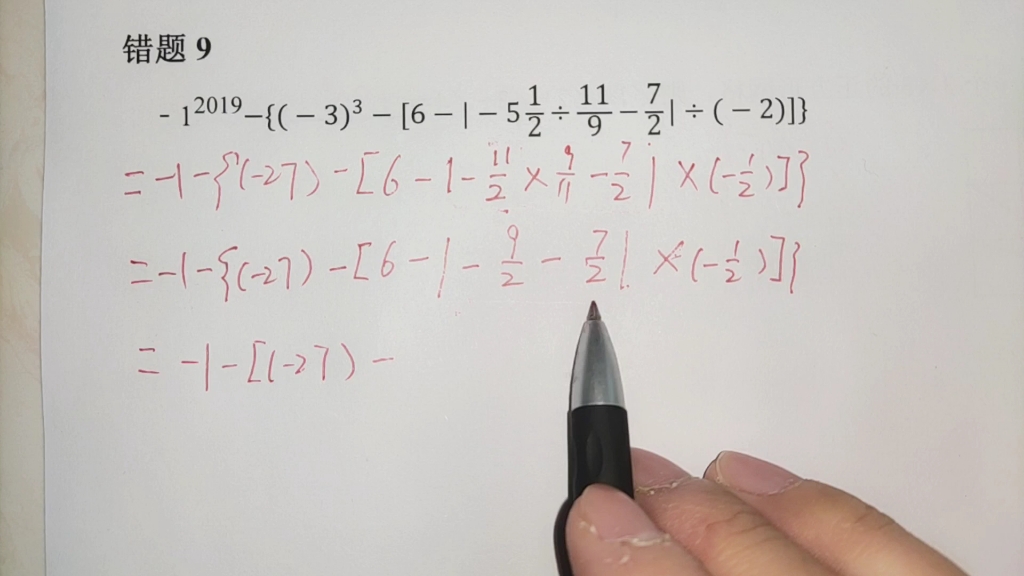 错题 9
- 1²⁰¹⁹−{(−3)³ − [6 − | − 5 1/2 ÷ 11/9 − 7/2| ÷ (−2)]}
= -1 - {(-27) - [6 - |- 11/2 × 9/11 - 7/2| × (-1/2)]}
= -1 - {(-27) - [6 - |- 9/2 - 7/2| × (-1/2)]}
= -1 - [(-27) -